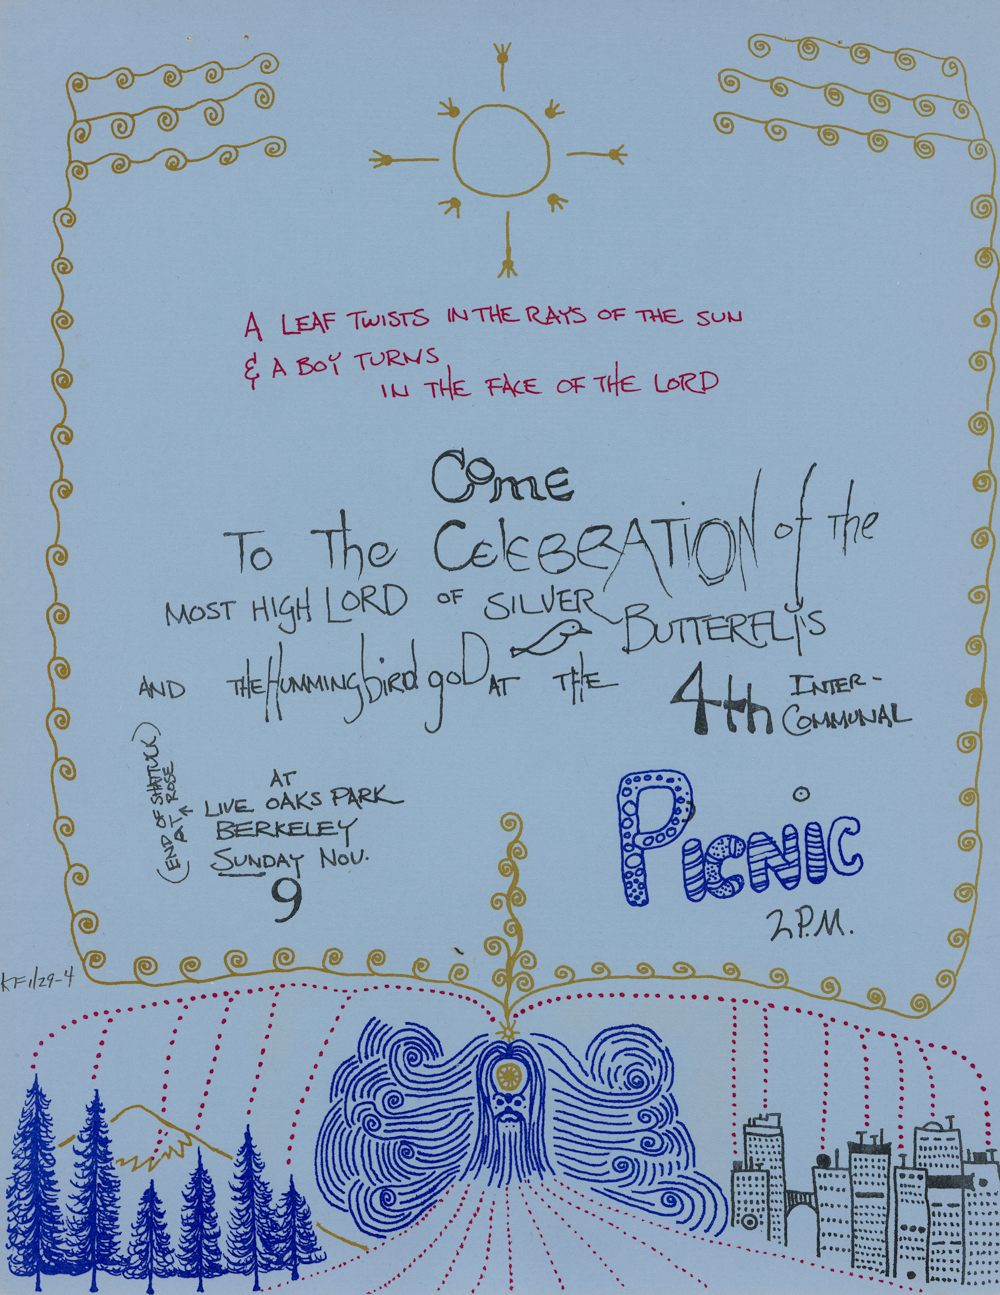 A LEAF TWISTS IN THE RAYS OF THE SUN
& A BOY TURNS
IN THE FACE OF THE LORD
COME
TO THE CELEBRATION of the
MOST HIGH LORD OF SILVER BUTTERFLYS
AND THE HUMMINGbird goD AT THE
4th INTER-
COMMUNAL
PICNIC
2 P.M.
AT
LIVE OAKS PARK
BERKELEY
SUNDAY NOV.
9
(END OF SHATTUCK)
AT ROSE
KF 1/29-4